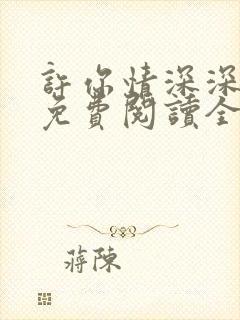 許你情深深
免費閱讀全
蔣陳